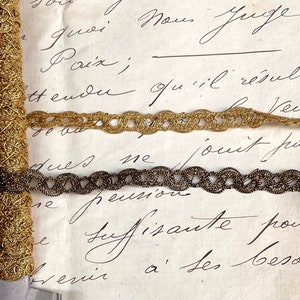 nous Juge
quoi
Paix;
ttendu qu'il résul
le Ve
ne jouit pa
pension
suffisante pou
à ses beso